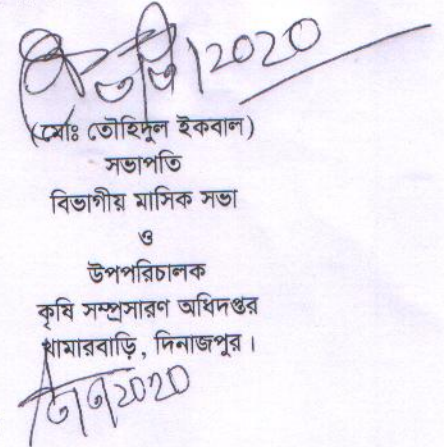 ২০২০
(মোঃ তৌহিদুল ইকবাল)
সভাপতি
বিভাগীয় মাসিক সভা
ও
উপপরিচালক
কৃষি সম্প্রসারণ অধিদপ্তর
খামারবাড়ি, দিনাজপুর।